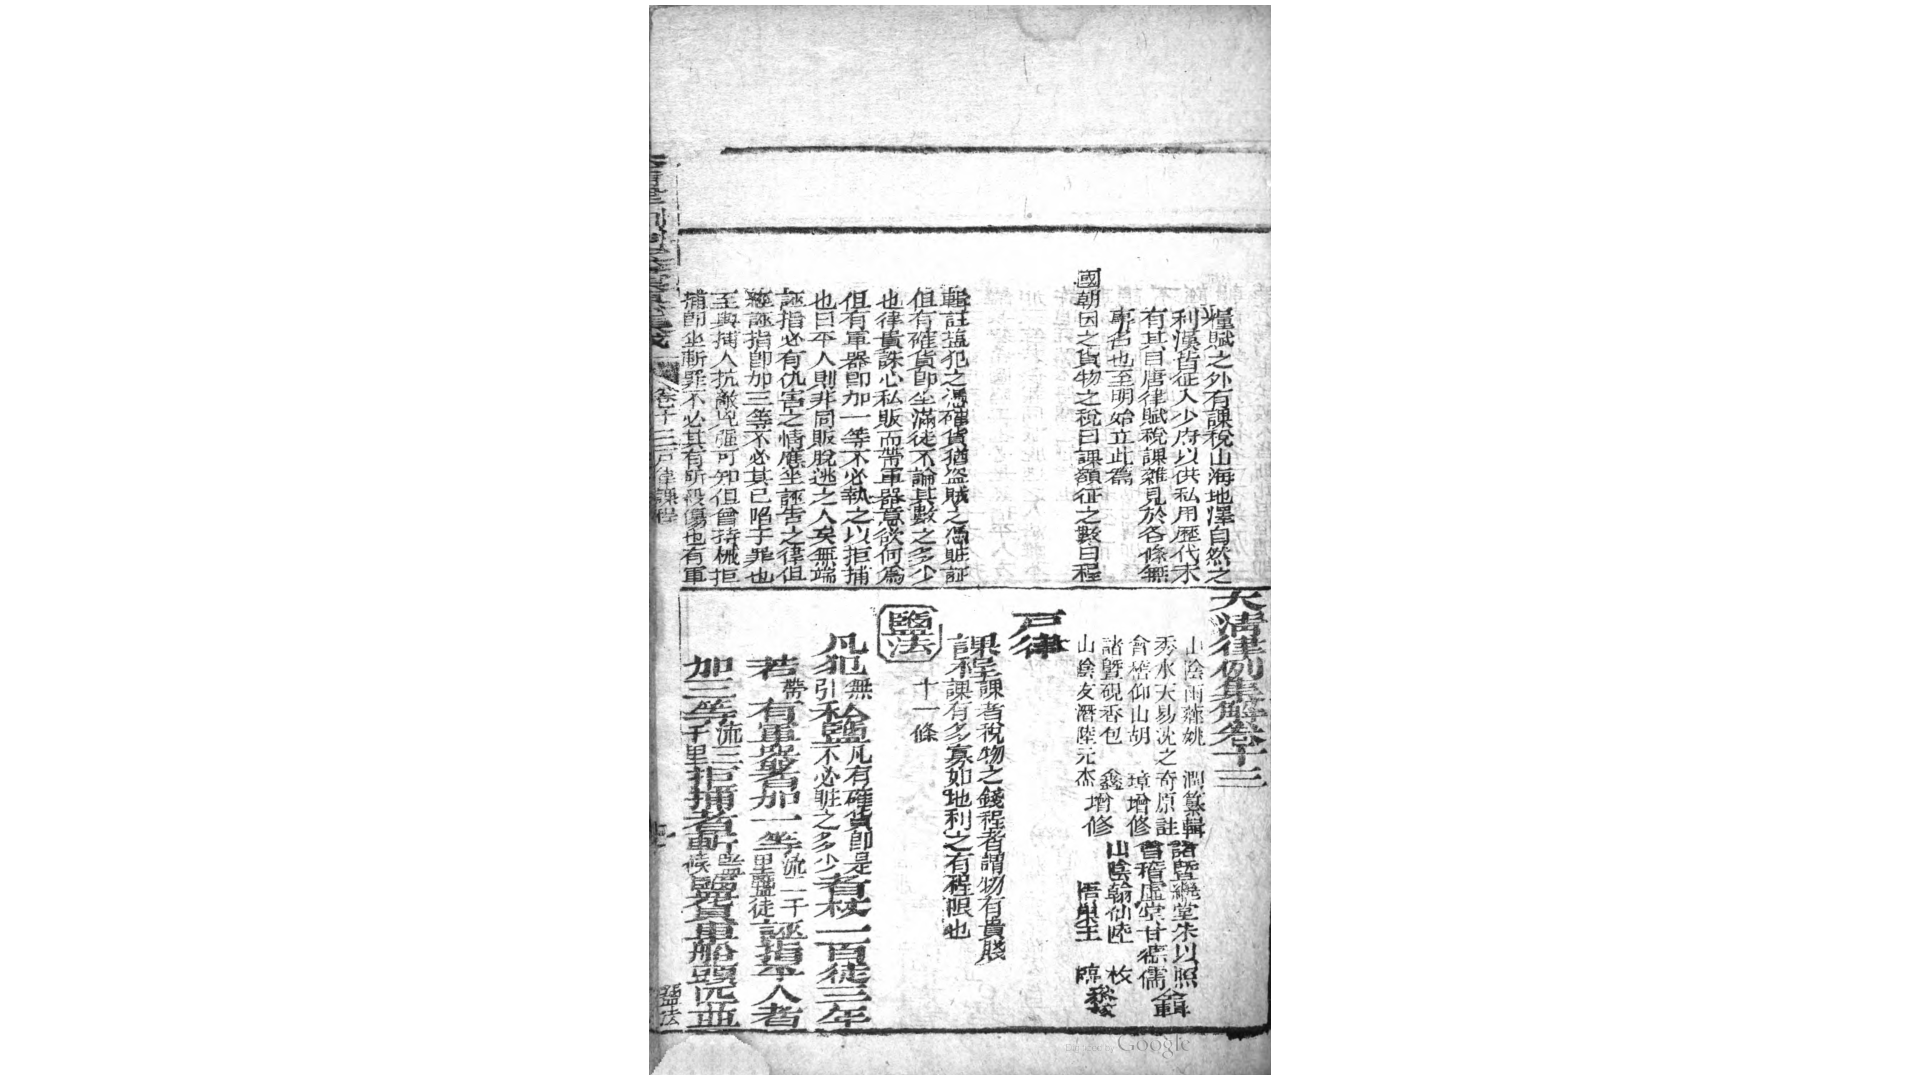 糧賦之外有課稅山海地澤自然之
利漢皆征入少府以供私用歷代末
有其目唐律賦稅課雜見於各條無
專名也至明始立此篇
國朝因之貨物之稅曰課額征之數曰程
輯註鹽犯之憑確貨猶盜賊之憑賍証
但有確貨卽坐滿徒不論其數之多少
也律貴誅心私販而帶軍器意欲何為
但有軍器卽加一等不必執之以拒捕
也曰平人則非同販脫逃之人矣無端
誣指必有仇害之情應坐誣告之律但
經誣指卽加三等不必其已陷于罪也
至與捕人抗敵兇强可知但曾持械拒
捕卽坐斬罪不必其有所殺傷也有軍
大清律例集解卷十三
山陰雨薌姚 潤纂輯
秀水天易沈之奇原註
會稽仰山胡 璋增修
諸暨硯香包 鑫增修
山陰友潛陸元杰
諸暨繩堂朱以照
會稽虛堂甘德儒 仝輯
山陰翰仙陸 枚
悟巢王
戶律
課程課者稅物之錢程者謂物有貴賤
課有多寡如地利之有程限也
鹽法
十一條
凡犯無引私鹽凡有確貨卽是不必賍之多少者杖一百徒三年
若帶有軍器者加一等流二千里鹽徒誣指平人者
加三等流三千里拒捕者斬監候鹽貨車船頭匹並
卷十三戶律課程
鹽法
Google